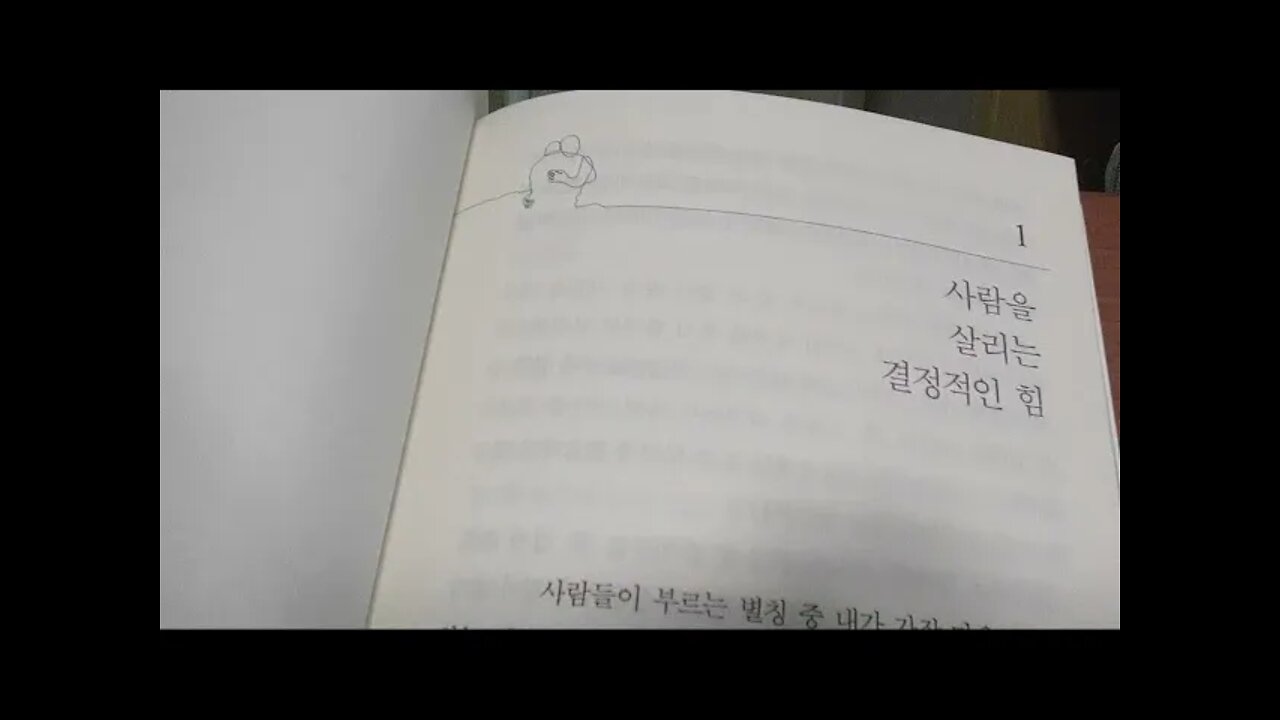 1
사람을
살리는
결정적인 힘
사람들이 부르는 별칭 중 내가 가장